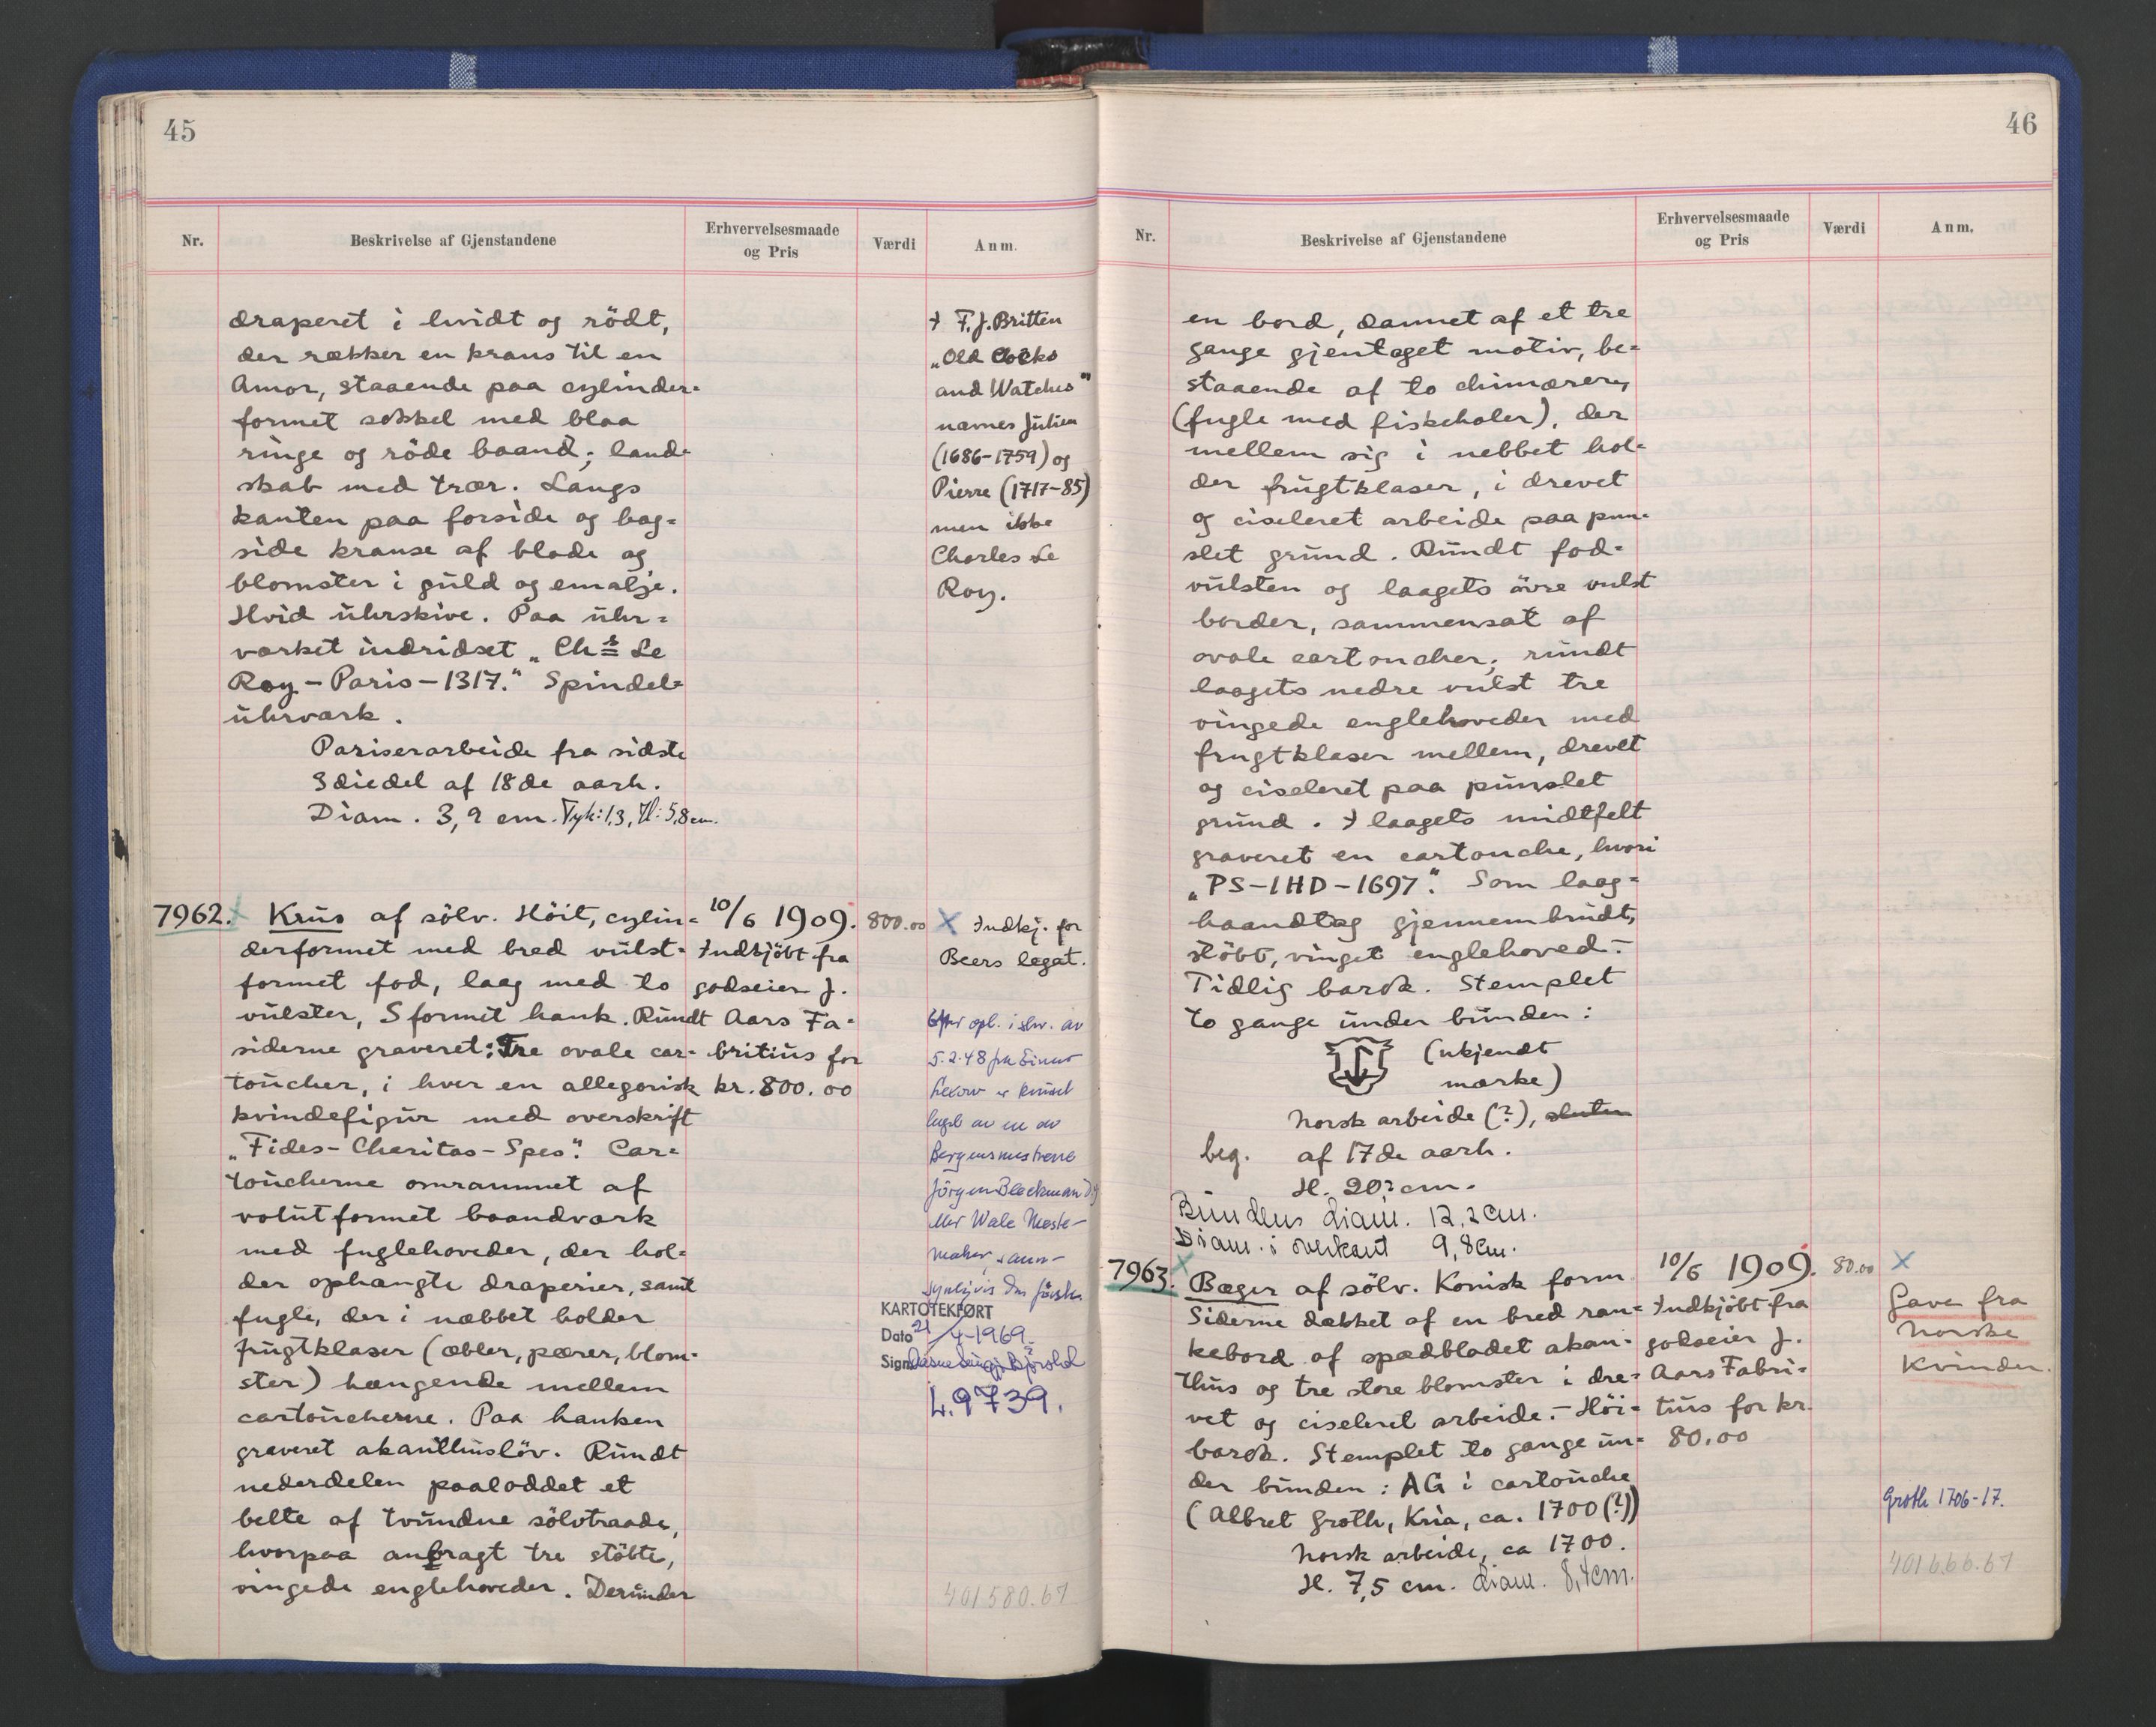 45
Nr.
Beskrivelse af Gjenstandene
Erhvervelsesmaade
og Pris
Værdi
Anm.
draperet i hvidt og rödt,
der rækker en krans til en
Amor, staaende paa cylinder-
formet sokkel med blaa
ringe og röde baand; land-
skab med trær. Langs
kanten paa forside og bag-
side kranse af blade og
blomster i guld og emalje.
Hvid uhrskive. Paa uhr-
værket indridset „Chs Le
Roy – Paris – 1317." Spindel-
uhrværk.
Pariserarbeide fra sidste
3diedel af 18de aarh.
Diam. 3,9 cm. Tyk: 1,3, H: 5,8 cm.
I F.J. Britten
„Old Clocks
and Watches"
nævnes Julien
(1686-1759) og
Pierre (1717-85)
men ikke
Charles Le
Roy.
7962. Krus af sölv. Höit, cylin-
derformet med bred vulst-
formet fod, laag med to
vulster, S formet hank. Rundt
siderne graveret: Tre ovale car-
toucher, i hver en allegorisk
kvindefigur med overskrift
„Fides – Charitas – Spes". Car-
toucherne omrammet af
volutformet baandværk
med fuglehoveder, der hol-
der ophængte draperier, samt
fugle, der i næbbet holder
frugtklaser (æbler, pærer, blom-
ster) hængende mellem
cartoucherne. Paa hanken
graveret akanthuslöv. Rundt
nederdelen paaloddet et
belte af tvundne sölvtraade,
hvorpaa anbragt tre stöbte,
vingede englehoveder. Derunder
10/6 1909.
Indkjöbt fra
godseier J.
Aars Fa-
britius for
kr. 800.00
800.00
X Indkj. for
Beers legat.
Efter opl. i skr. av
5.2.48 fra Einar
Lexow er kruset
lagt av en av
Bergensmestrene
Jörgen Bleckman d.y
eller Wale Meste-
maker, sann-
synligvis den förste.
KARTOTEKFØRT
Dato 21/4-1969.
Sign.
L.9739.
401580.67
46
Nr.
Beskrivelse af Gjenstandene
Erhvervelsesmaade
og Pris
Værdi
Anm.
en bord, dannet af et tre
gange gjentaget motiv, be-
staaende af to chimærer,
(fugle med fiskehaler), der
mellem sig i nebbet hol-
der frugtklaser, i drevet
og ciseleret arbeide paa pun-
slet grund. Rundt fod-
vulsten og laagets övre vulst
border, sammensat af
ovale cartoucher; rundt
laagets nedre vulst tre
vingede englehoveder med
frugtklaser mellem, drevet
og ciseleret paa punslet
grund. I laagets midtfelt
graveret en cartouche, hvori
„PS – IHD – 1697". Som laag-
haandtag gjennembrudt,
stöbt, vinget englehoved. –
Tidlig barok. Stemplet
to gange under bunden:
(ukjendt
mærke)
Norsk arbeide (?), slutten
beg. af 17de aarh.
H. 20,2 cm.
Bundens diam. 12,2 cm.
Diam. i overkant 9,8 cm.
7963. Bæger af sölv. Konisk form
Siderne dækket af en bred ran-
kebord af spædbladet akan-
thus og tre store blomster i dre-
vet og ciseleret arbeide. – Höi-
barok. Stemplet to gange un-
der bunden: AG i cartouche
(Albret Groth, Kria, ca. 1700 (?))
Norsk arbeide, ca 1700.
H. 7,5 cm. Diam. 8,4 cm.
10/6 1909.
Indkjöbt fra
godseier J.
Aars Fabri-
tius for kr.
80.00
80.00
X
Gave fra
Norske
Kvinder.
Groth 1706-17.
401666.67